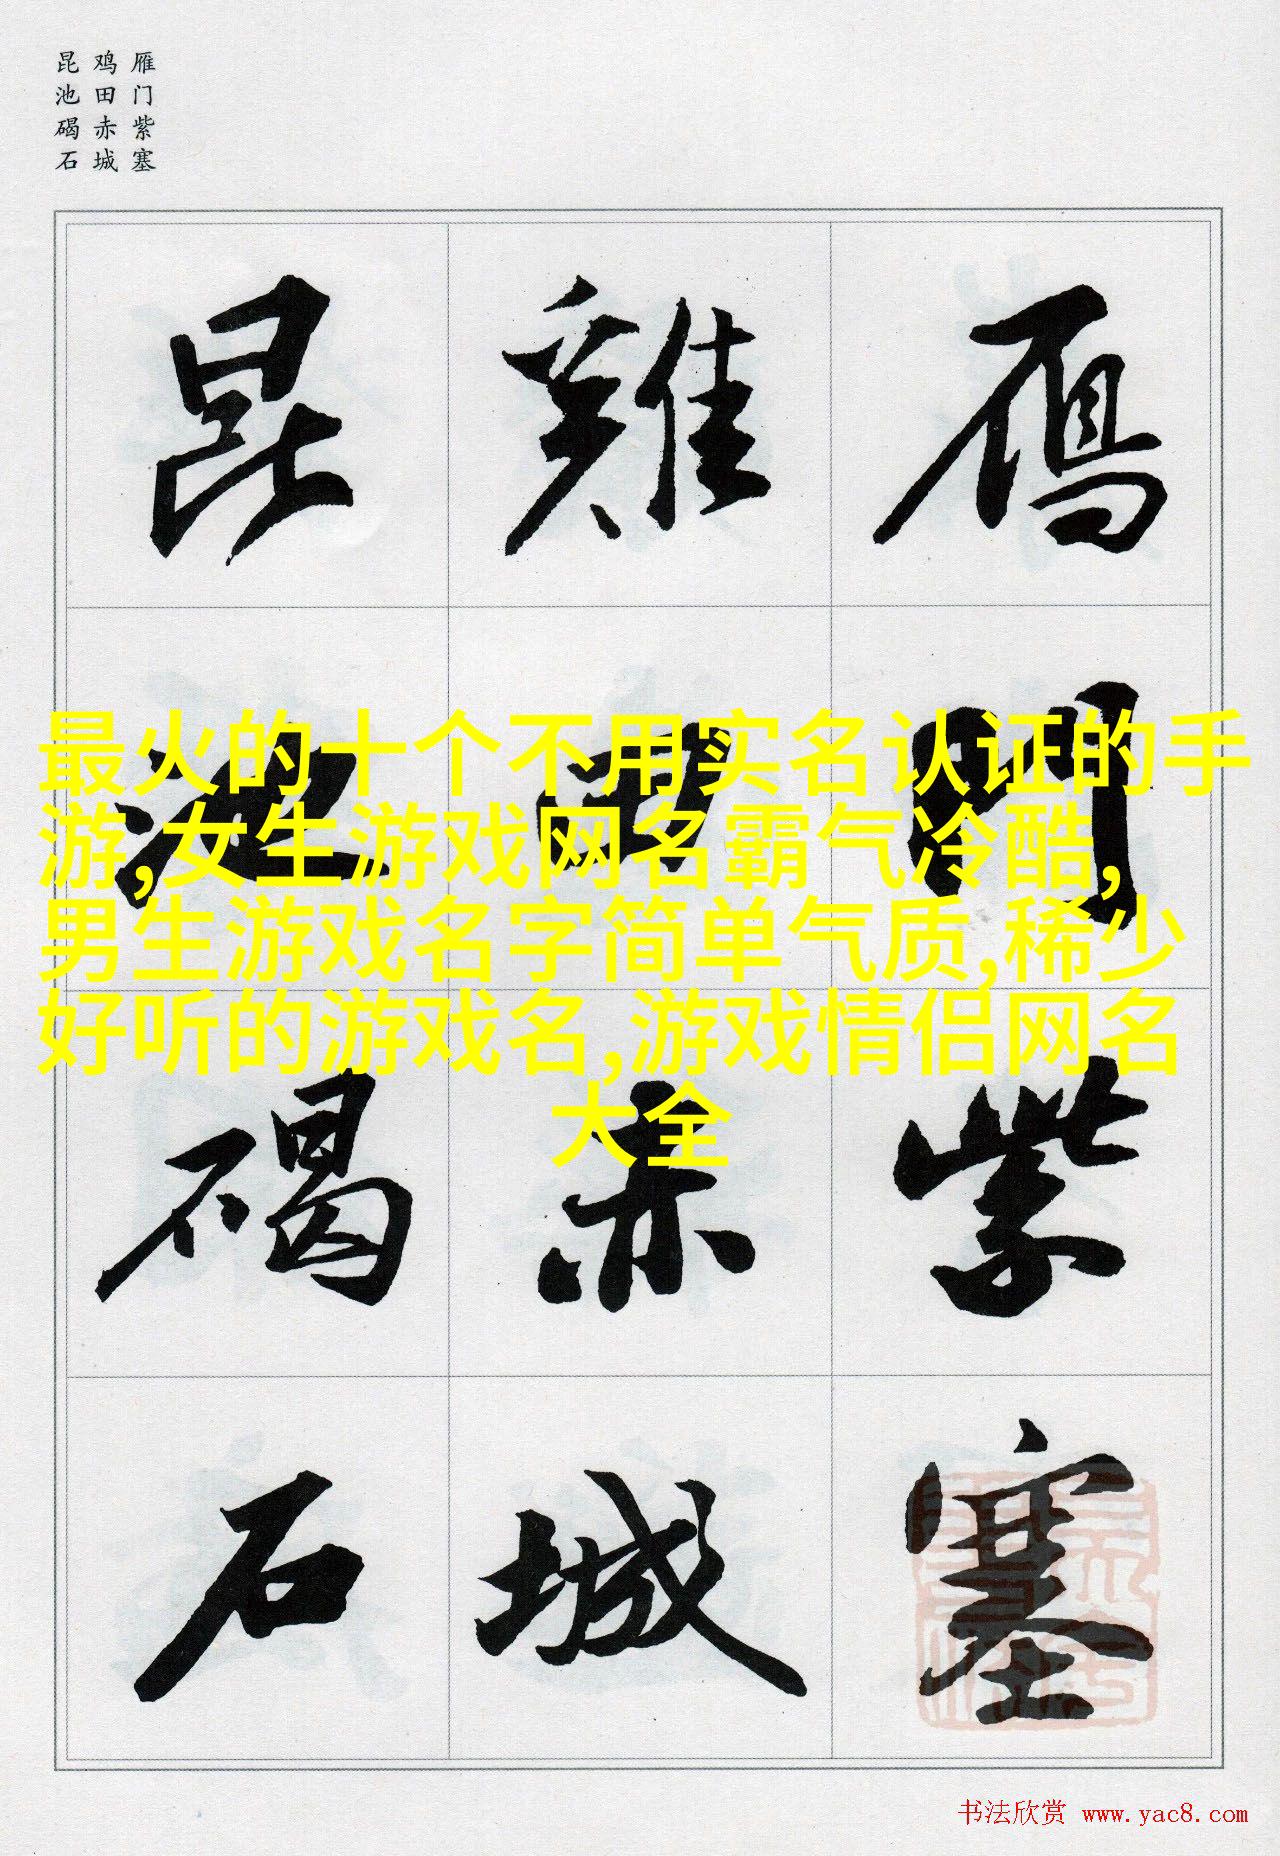 雁门紫塞
鸡田赤城
昆池碣石
雁門紫塞
雞田赤城
昆池碣石
最火的十个不用实名认证的手
游,女生游戏网名霸气冷酷,
男生游戏名字简单气质,稀少
好听的游戏名,游戏情侣网名
大全
书法欣赏 www.yac8.com